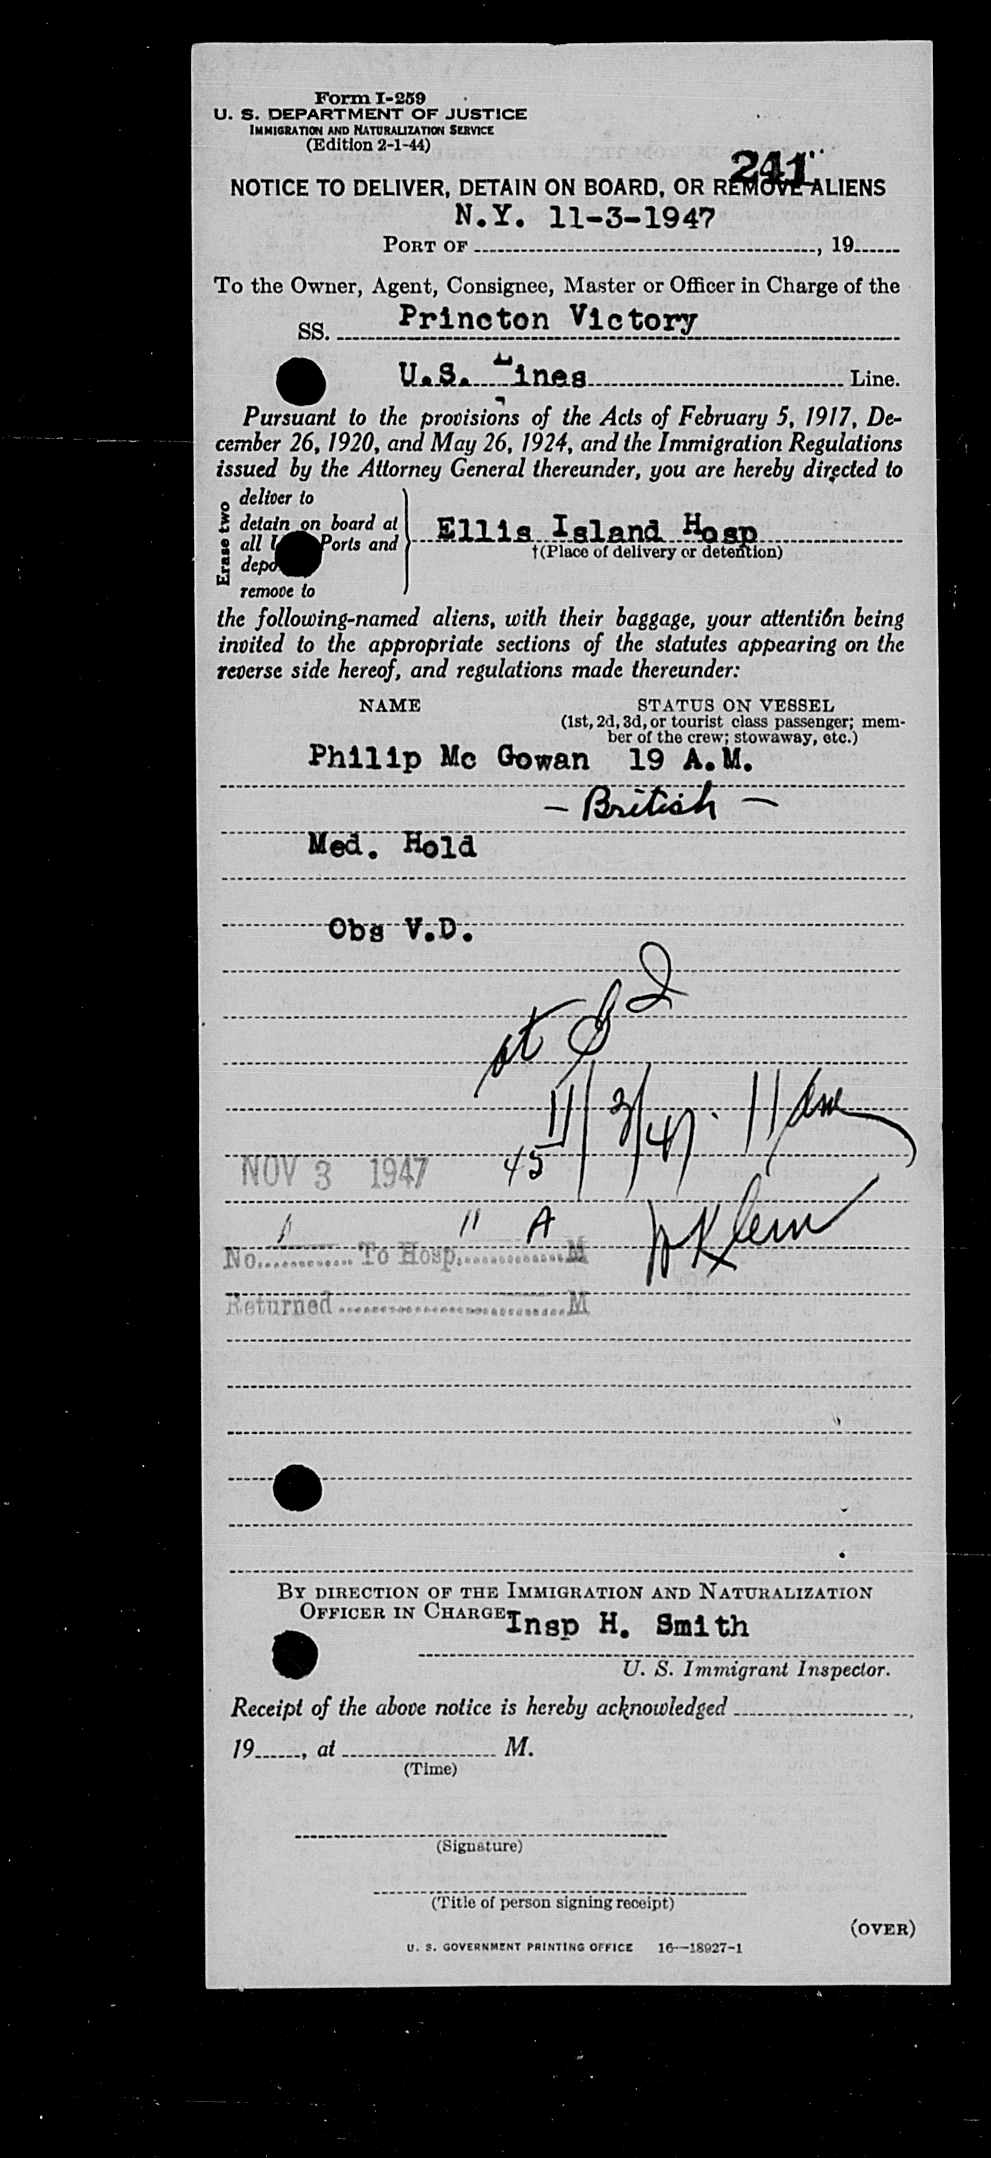 Form I-259
U. S. DEPARTMENT OF JUSTICE
IMMIGRATION AND NATURALIZATION SERVICE
(Edition 2-1-44)
241
NOTICE TO DELIVER, DETAIN ON BOARD, OR REMOVE ALIENS
N.Y. 11-3-1947
PORT OF , 19
To the Owner, Agent, Consignee, Master or Officer in Charge of the
SS. Princton Victory
U.S. Lines Line.
Pursuant to the provisions of the Acts of February 5, 1917, De-
cember 26, 1920, and May 26, 1924, and the Immigration Regulations
issued by the Attorney General thereunder, you are hereby directed to
Erase two
deliver to
detain on board at
all Ports and
remove to
Ellis Island Hosp
†(Place of delivery or detention)
the following-named aliens, with their baggage, your attention being
invited to the appropriate sections of the statutes appearing on the
reverse side hereof, and regulations made thereunder:
NAME STATUS ON VESSEL
(1st, 2d, 3d, or tourist class passenger; mem-
ber of the crew; stowaway, etc.)
Philip Mc Gowan 19 A.M.
— British —
Med. Hold
Obs V.D.
at
11/3/47. 11 am
45
NOV 3 1947
No. 1 To Hosp. 11 A M
Klein
Returned M
BY DIRECTION OF THE IMMIGRATION AND NATURALIZATION
OFFICER IN CHARGE
Insp H. Smith
U. S. Immigrant Inspector.
Receipt of the above notice is hereby acknowledged ,
19 , at M.
(Time)
(Signature)
(Title of person signing receipt)
(OVER)
U. S. GOVERNMENT PRINTING OFFICE 16—18927-1